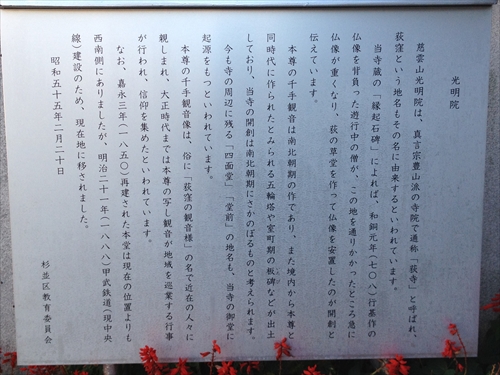 光明院
慈雲山光明院は、真言宗豊山派の寺院で通称「荻寺」と呼ばれ、
荻窪という地名もその名に由来するといわれています。
当寺蔵の「縁起石碑」によれば、和銅元年(七〇八)行基作の
仏像を背負った遊行中の僧が、この地を通りかかったところ急に
仏像が重くなり、荻の草堂を作って仏像を安置したのが開創と
伝えています。
本尊の千手観音は南北朝期の作であり、また境内から本尊と
同時代に作られたとみられる五輪塔や室町期の板碑などが出土
しており、当寺の開創は南北朝期にさかのぼるものと考えられます。
今も寺の周辺に残る「四面堂」「堂前」の地名も、当寺の御堂に
起源をもつといわれています。
本尊の千手観音像は、俗に「荻窪の観音様」の名で近在の人々に
親しまれ、大正時代までは本尊の写し観音が地域を巡業する行事
が行われ、信仰を集めたといわれています。
なお、嘉永三年(一八五〇)再建された本堂は現在の位置よりも
西南側にありましたが、明治二十一年(一八八八)甲武鉄道(現中央
線)建設のため、現在地に移されました。
昭和五十五年二月二十日
杉並区教育委員会